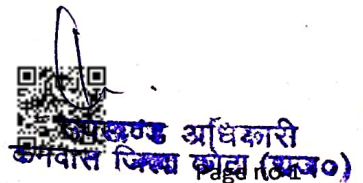 उपखण्ड अधिकारी
कनवास जिला कोटा (राज०)
Page no 1